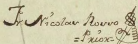 Fr. Nicolav Rovvo
=Prior=